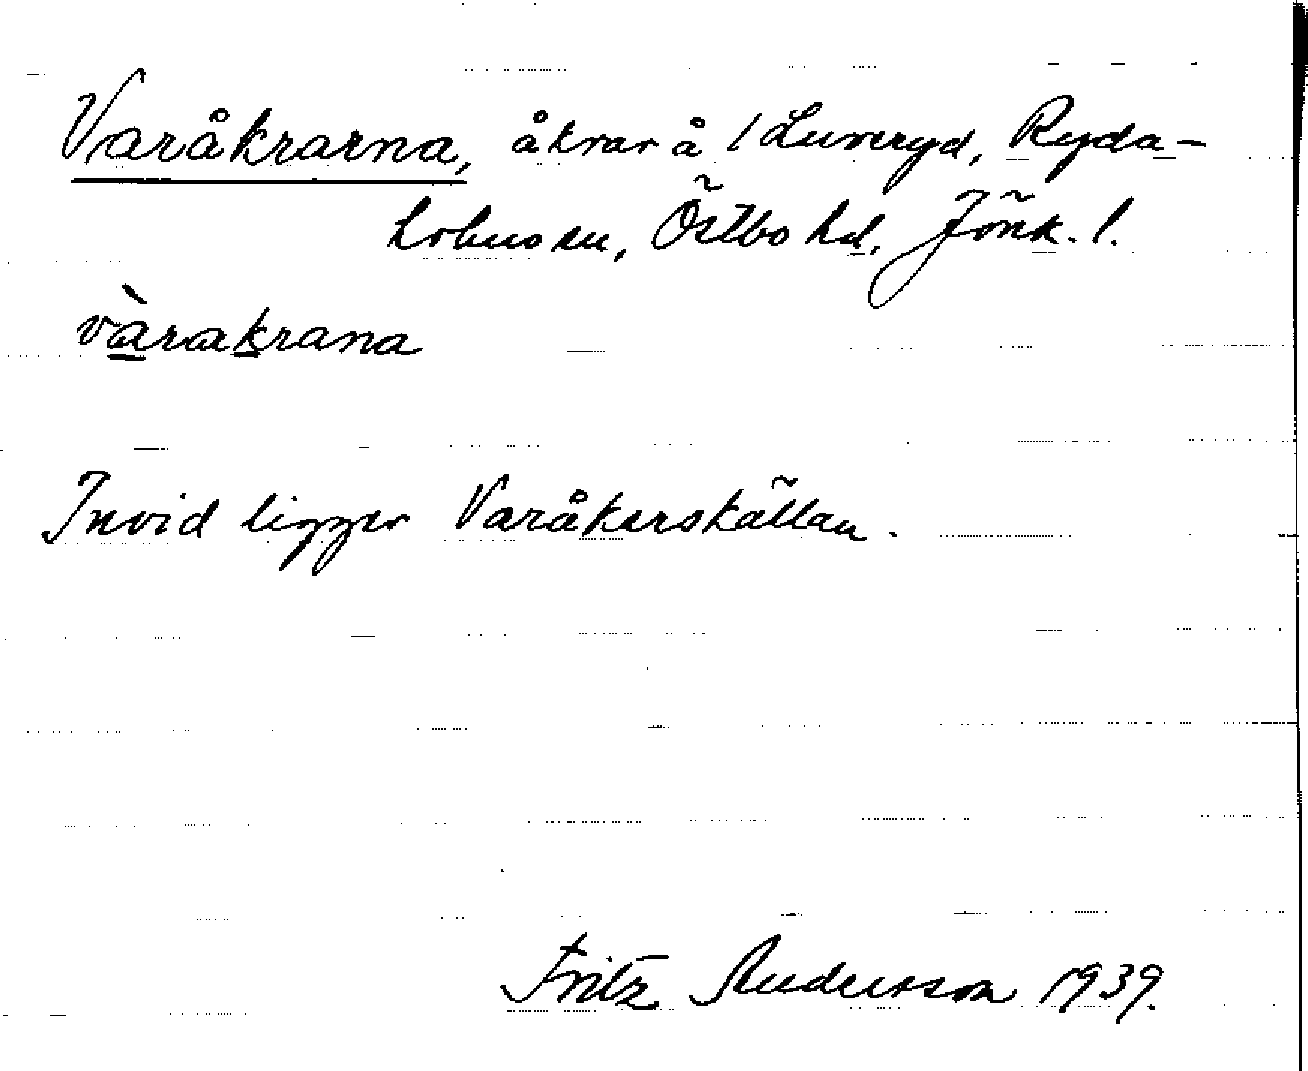 Varåkrarna, åkrar å /Luneryd, Ryda-
holms sn, Östbo hd, Jönk. l.
vàrakrana
Invid ligger Varåkerskällan.
Fritz Andersson 1939.